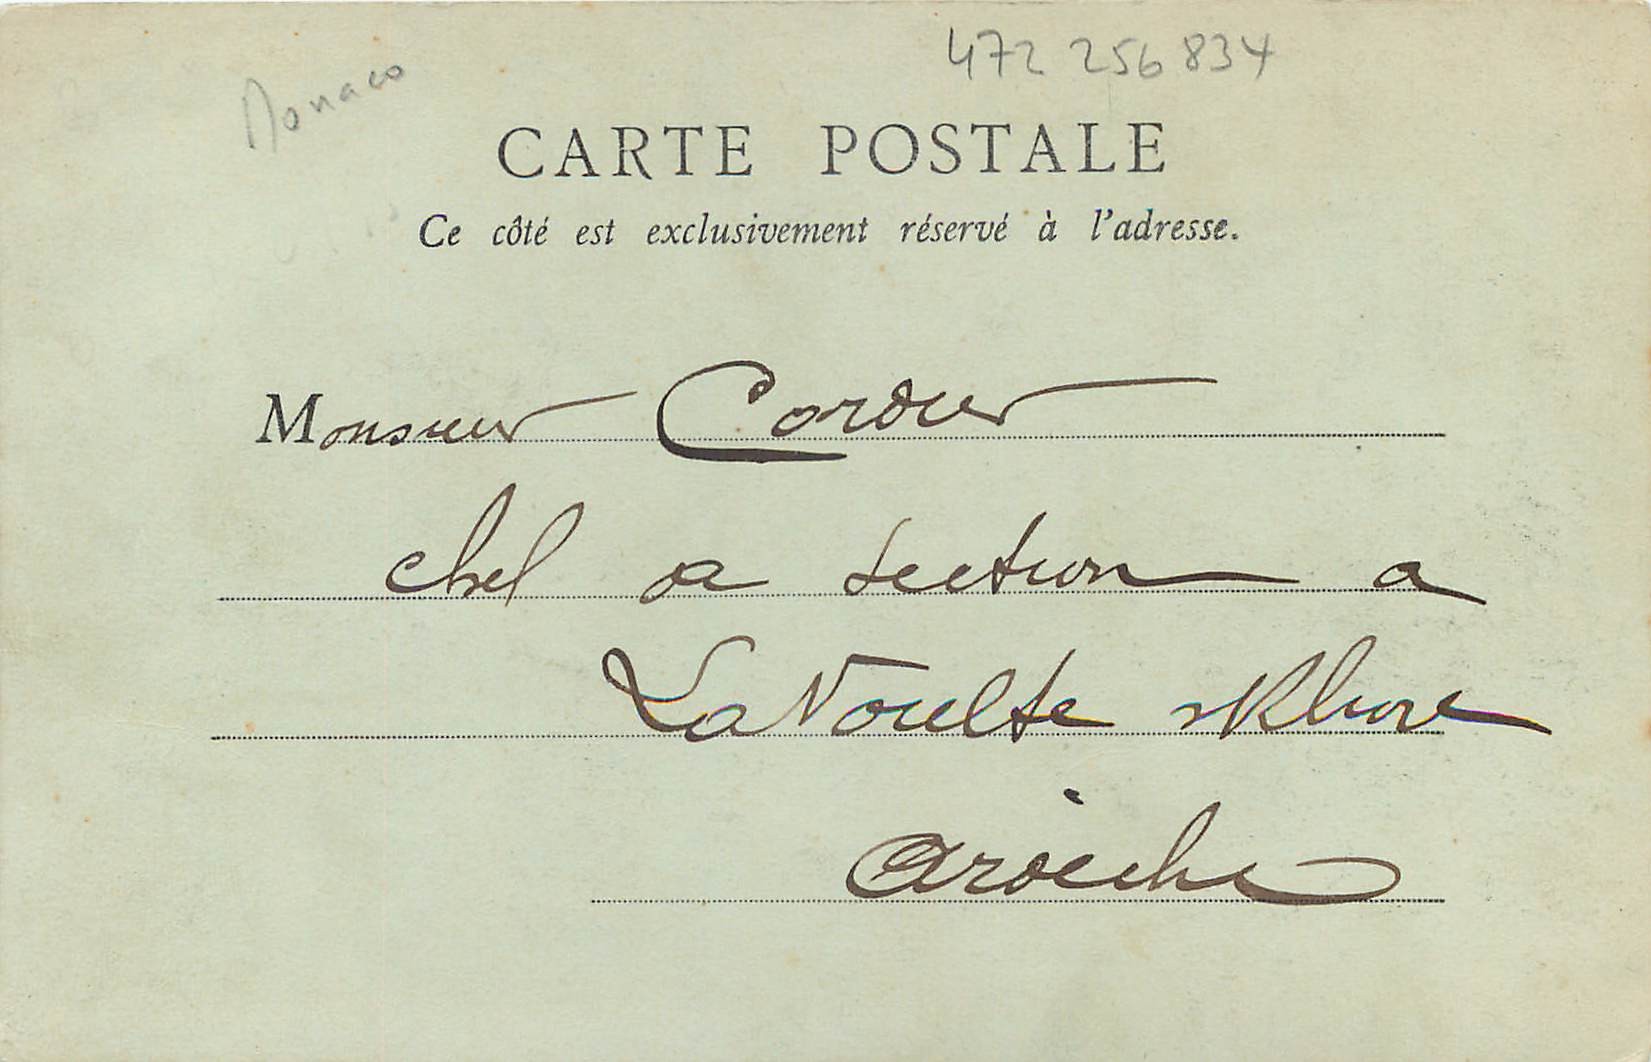 Monaco
472 256 834
CARTE POSTALE
Ce côté est exclusivement réservé à l'adresse.
Monsieur Cordier
chef de section a
La Voulte s/Rhône
Ardèche